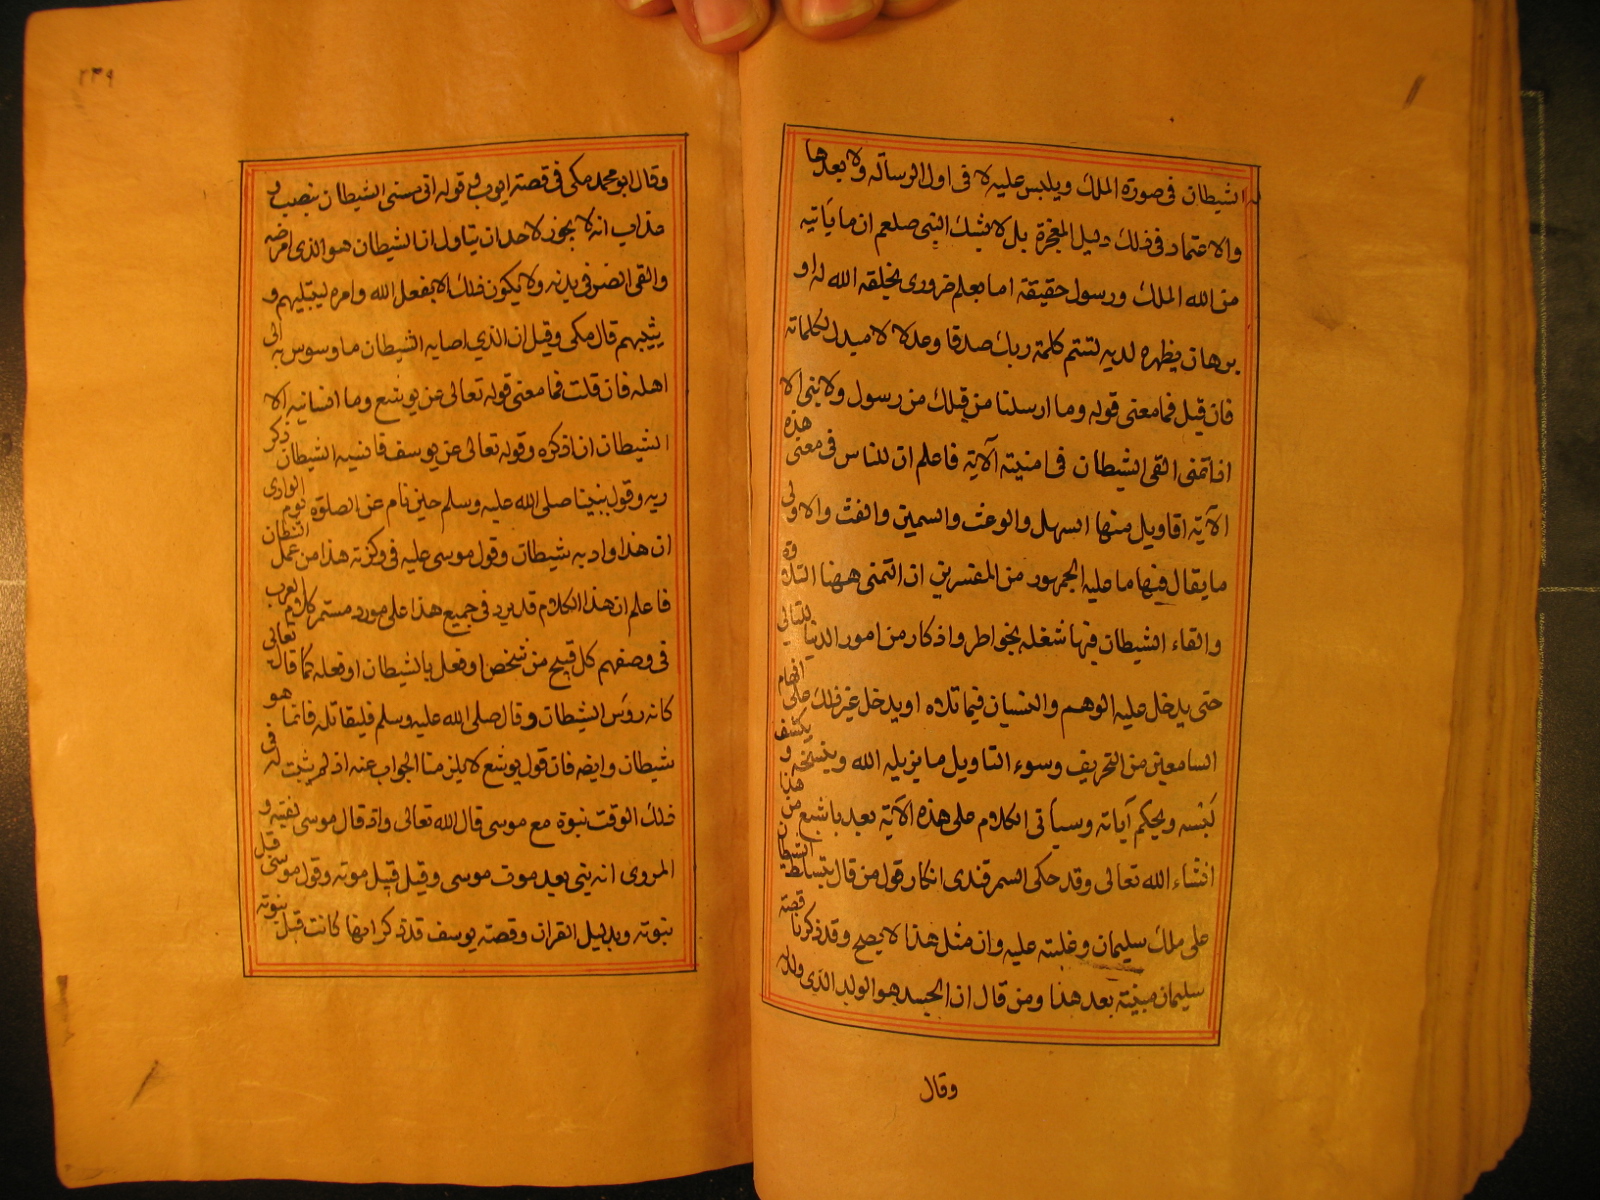 له الشيطان فى صورة الملك ويلبس عليه لا فى اول الرسالة ولا بعدها
والاعتماد فى ذلك دليل المعجزة بل لا يشك النبى صلعم ان ما ياتيه
من الله الملك ورسول حقيقة اما بعلم ضرورى يخلقه الله له او
برهان يظهره لديه لتتم كلمة ربك صدقا وعدلا لا مبدل لكلماته
فان قيل فما معنى قوله وما ارسلنا من قبلك من رسول ولا نبى الا
اذا تمنى القى الشيطان فى امنيته الآية فاعلم ان للناس فى معنى هذه
الآية اقاويل منها السهل والوعث والسمين والغث والاولى
ما يقال فيها ما عليه الجمهور من المفسرين ان التمنى ههنا التلاوة
والقاء الشيطان فيها شغله بخواطر واذكار من امور الدنيا للتالى
حتى يدخل عليه الوهم والنسيان فيما تلاه او يدخل غير ذلك على افهام
السامعين من التحريف وسوء التاويل ما يزيله الله وينسخه ويكشف
لبسه ويحكم آياته وسيأتى الكلام على هذه الآية بعد باشبع من هذا
انشاء الله تعالى وقد حكى السمرقندى انكار قول من قال بتسلط الشيطان
على ملك سليمان وغلبته عليه وان مثل هذا لا يصح وقد ذكرنا قصة
سليمان مبينة بعد هذا ومن قال ان الجسد هو الولد الذى ولد له
وقال
٢٣٩
وقال ابو محمد مكى فى قصة ايوب وقوله انى مسنى الشيطان بنصب و
عذاب انه لا يجوز لاحد ان يتاول ان الشيطان هو الذى امرضه
والقى الضر فى بدنه ولا يكون ذلك الا بفعل الله وامره ليبتليهم و
يثيبهم قال مكى وقيل ان الذي اصابه الشيطان ما وسوس به الى
اهله فان قلت فما معنى قوله تعالى عن يوشع وما انسانيه الا
الشيطان ان اذكره وقوله تعالى عن يوسف فانسيه الشيطان ذكر
ربه وقول نبينا صلى الله عليه وسلم حين نام عن الصلوة يوم الوادى
ان هذا واد به شيطان وقول موسى عليه فى وكزته هذا من عمل الشيطان
فاعلم ان هذا الكلام قد يرد فى جميع هذا على مورد مستمر كلام العرب
فى وصفهم كل قبيح من شخص او فعل بالشيطان او فعله كما قال تعالى
كانه رؤس الشيطان وقال صلى الله عليه وسلم فليقاتله فانما هو
شيطان وايضه فان قول يوشع لا يلزمنا الجواب عنه اذ لم يثبت له فى
ذلك الوقت نبوة مع موسى قال الله تعالى واذ قال موسى لفتيه و
المروى انه نبى بعد موت موسى وقيل قبيل موته وقول موسى قبل
نبوته وبدليل القران وقصة يوسف قد ذكر انها كانت قبل نبوته